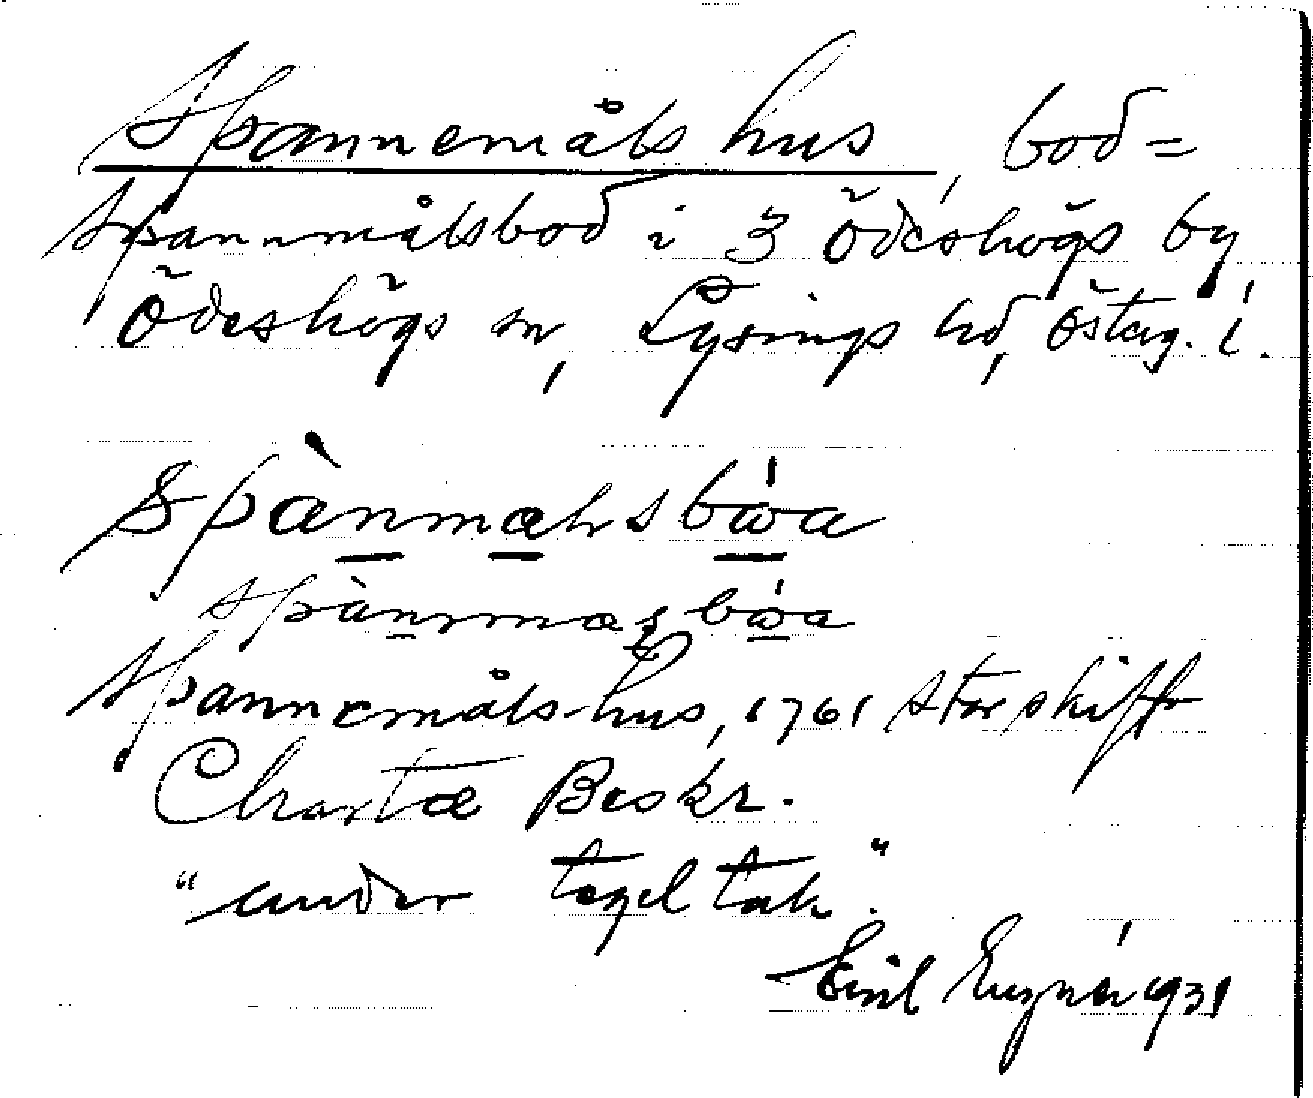 Spannemåls hus, bod =
spannmålsbod i 3 Ödeshögs by
Ödeshögs sn, Lysings hd, Östерg. l.
spànmahsbωa
spànmasbωa
Spannemåls-hus, 1761 storskifte
Chartæ Beskr.
"under tegel tak".
Emil 1931